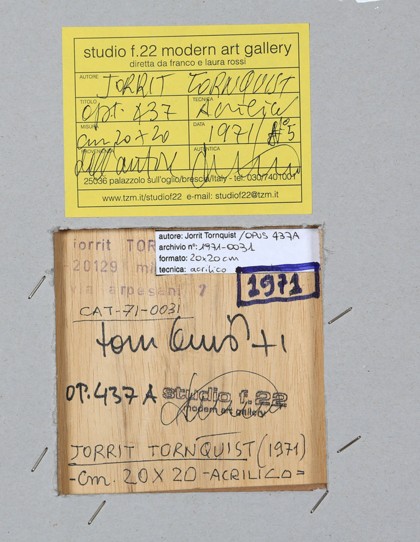 studio f.22 modern art gallery
diretta da franco e laura rossi
AUTORE JORRIT TORNQUIST
TITOLO opt. 437 TECNICA Acrilico
MISURE cm 20×20 DATA 1971
PROVENIENZA dell'autore AUTENTICA
25036 palazzolo sull'oglio/brescia/italy - tel. 030/7401001
www.tzm.it/studiof22 e-mail: studiof22@tzm.it
autore: Jorrit Tornquist / OPUS 437A
archivio n°: 1971-0031
formato: 20x20 cm
tecnica: acrilico
jorrit TOR
20129 mi
via arpesani 7
1971
CAT-71-0031
OP. 437 A
studio f.22
modern art gallery
JORRIT TORNQUIST (1971)
-cm. 20X20 -ACRILICO-